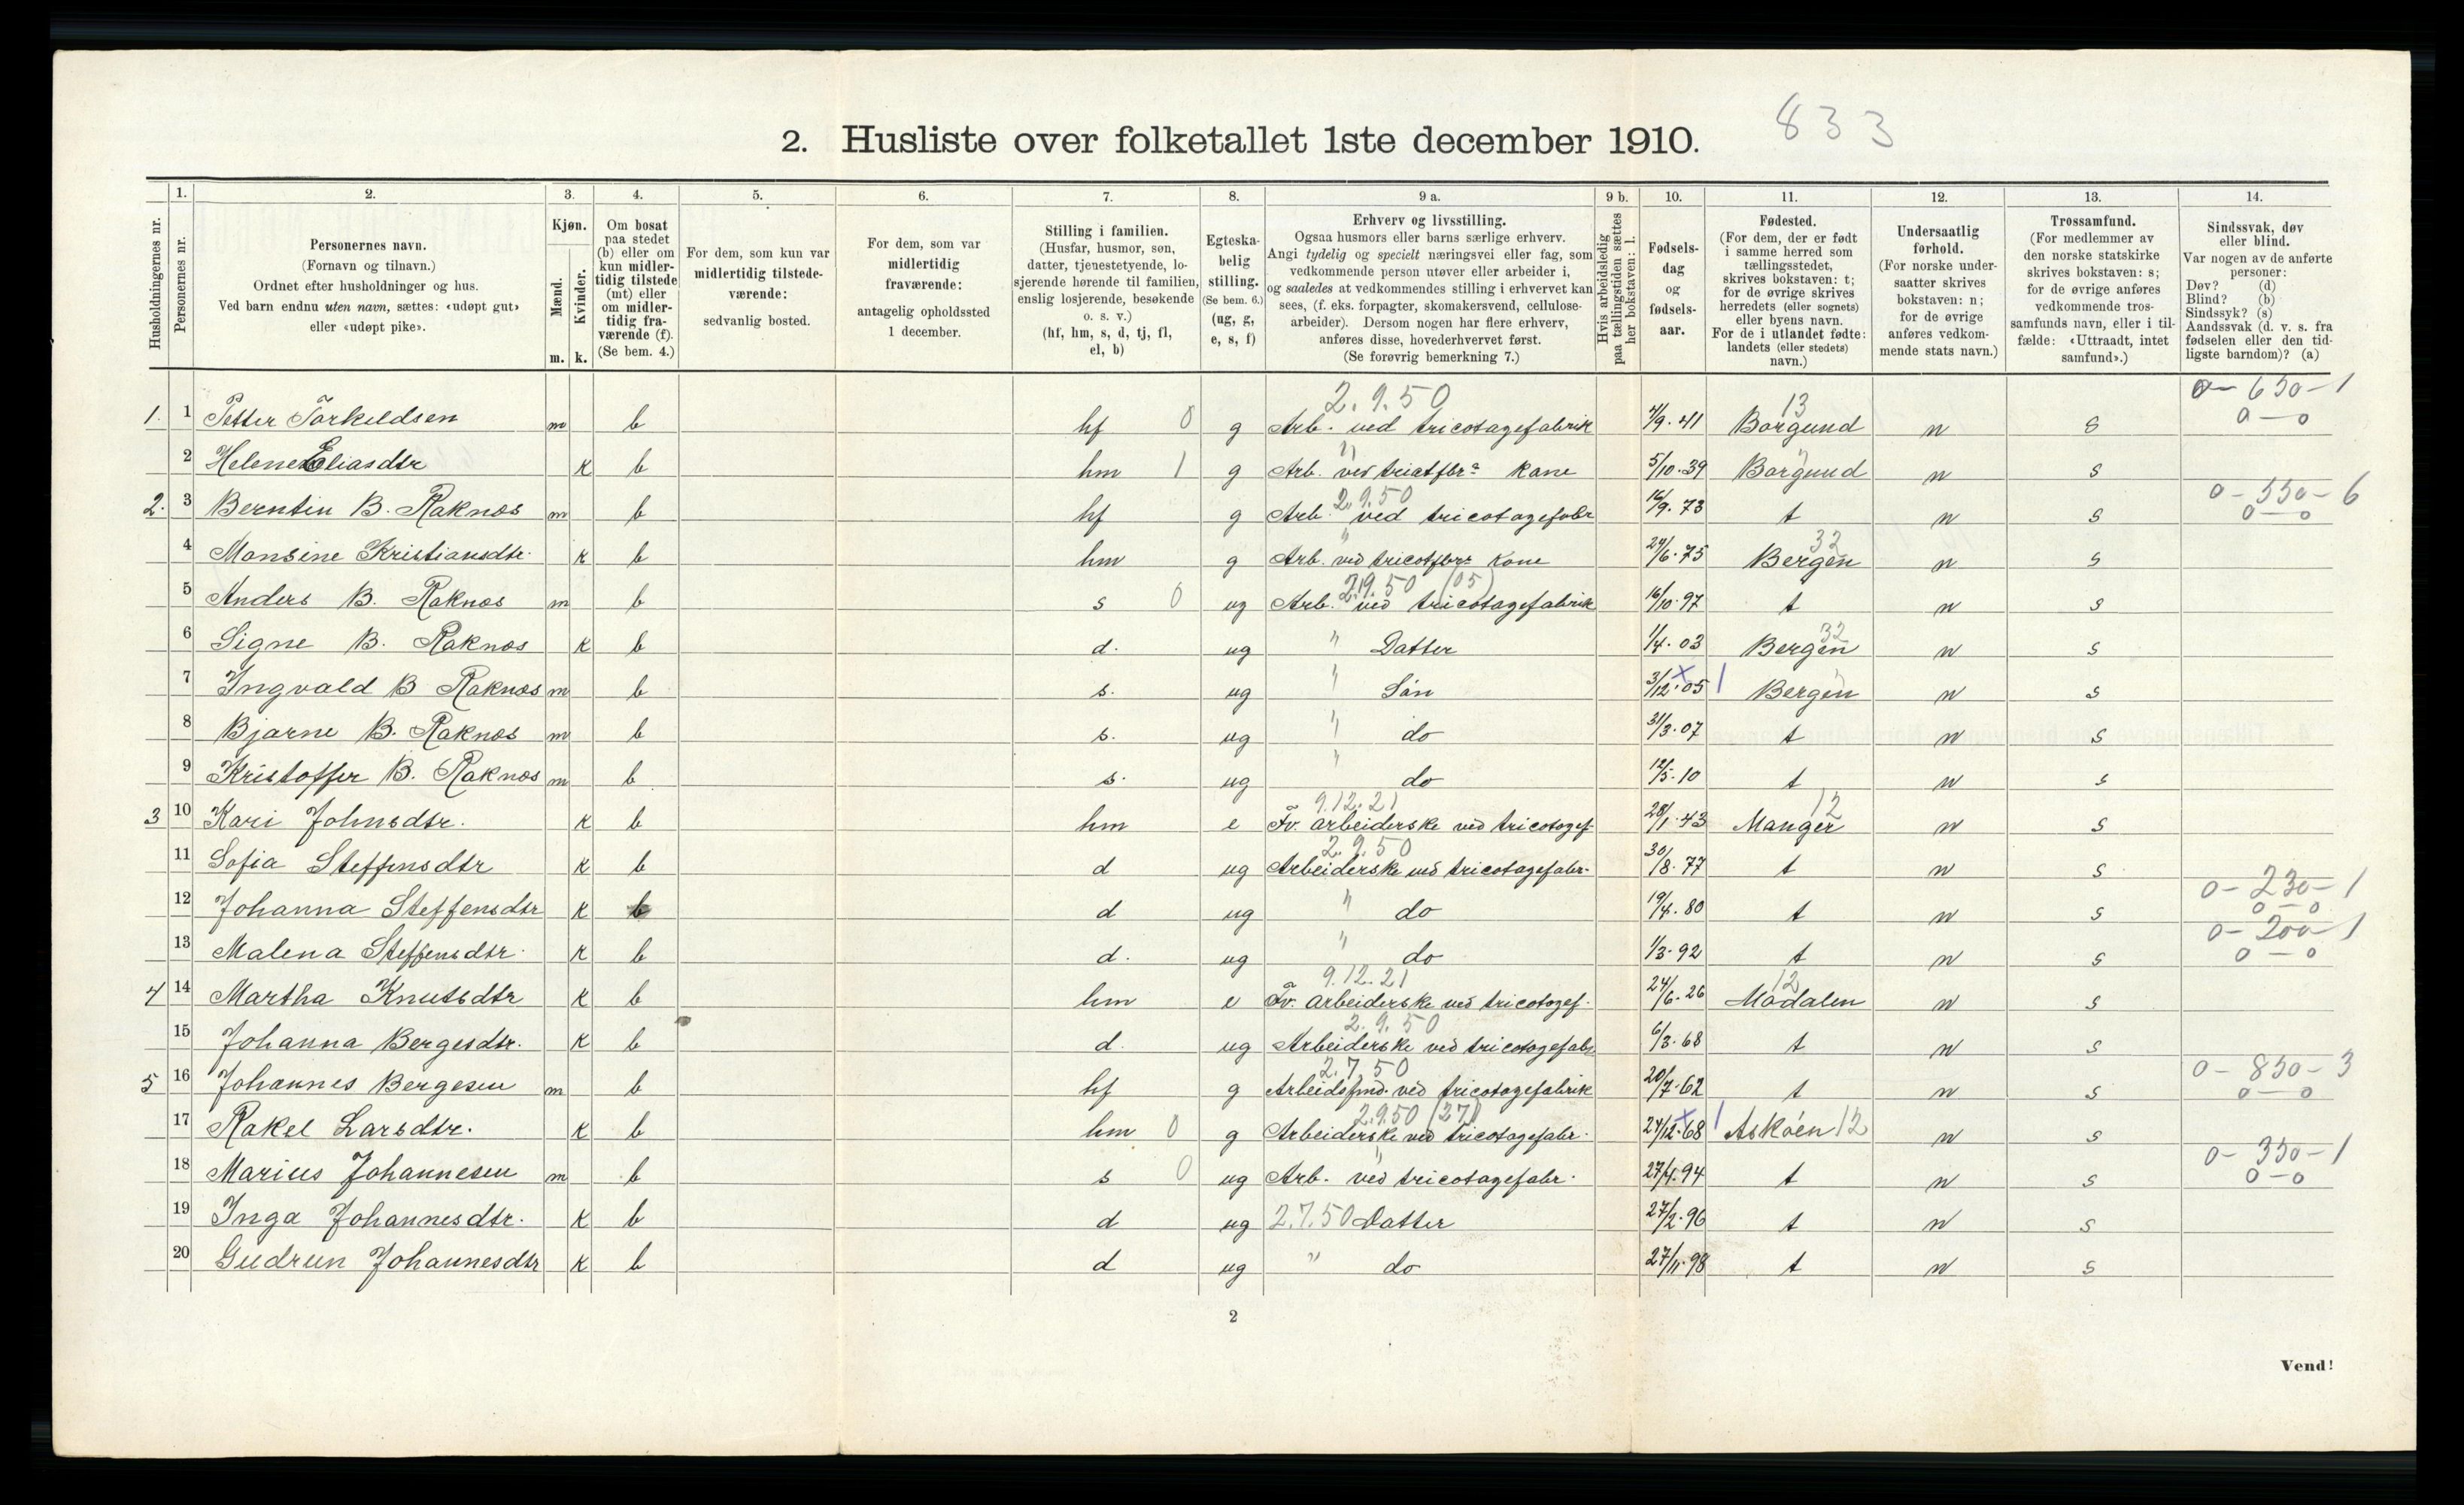 833
2. Husliste over folketallet 1ste december 1910.
Husholdningernes nr.
1. Personernes nr.
2. Personernes navn. (Fornavn og tilnavn.) Ordnet efter husholdninger og hus. Ved barn endnu uten navn, sættes: «udøpt gut» eller «udøpt pike».
3. Kjøn. Mænd. m. Kvinder. k.
4. Om bosat paa stedet (b) eller om kun midlertidig tilstede (mt) eller om midlertidig fraværende (f). (Se bem. 4.)
5. For dem, som kun var midlertidig tilstedeværende: sedvanlig bosted.
6. For dem, som var midlertidig fraværende: antagelig opholdssted 1 december.
7. Stilling i familien. (Husfar, husmor, søn, datter, tjenestetyende, losjerende hørende til familien, enslig losjerende, besøkende o. s. v.) (hf, hm, s, d, tj, fl, el, b)
8. Egteskabelig stilling. (Se bem. 6.) (ug, g, e, s, f)
9 a. Erhverv og livsstilling. Ogsaa husmors eller barns særlige erhverv. Angi tydelig og specielt næringsvei eller fag, som vedkommende person utøver eller arbeider i, og saaledes at vedkommendes stilling i erhvervet kan sees, (f. eks. forpagter, skomakersvend, cellulosearbeider). Dersom nogen har flere erhverv, anføres disse, hovederhvervet først. (Se forøvrig bemerkning 7.)
9 b. Hvis arbeidsledig paa tællingstiden sættes her bokstaven: l.
10. Fødselsdag og fødselsaar.
11. Fødested. (For dem, der er født i samme herred som tællingsstedet, skrives bokstaven: t; for de øvrige skrives herredets (eller sognets) eller byens navn. For de i utlandet fødte: landets (eller stedets) navn.)
12. Undersaatlig forhold. (For norske undersaatter skrives bokstaven: n; for de øvrige anføres vedkommende stats navn.)
13. Trossamfund. (For medlemmer av den norske statskirke skrives bokstaven: s; for de øvrige anføres vedkommende trossamfunds navn, eller i tilfælde: «Uttraadt, intet samfund».)
14. Sindssvak, døv eller blind. Var nogen av de anførte personer: Døv? (d) Blind? (b) Sindssyk? (s) Aandssvak (d. v. s. fra fødselen eller den tidligste barndom)? (a)
2.9.50 13 0-650-1
1. 1 Petter Torkildsen m b hf 0 g Arb. ved tricotagefabrik 4/9.41 Borgund n s 0-0
2 Helene Eliasdtr k b hm 1 g Arb. ved tricotfbr. kone 5/10.39 Borgund n s
2.9.50 0-550-6
2. 3 Berntin B. Raknes m b hf g Arb. ved tricotagefabr 16/9.73 t n s 0-0
" 32
4 Monsine Kristiansdtr. k b hm g Arb. ved tricotfbr. kone 24/6.75 Bergen n s
2.9.50 (05)
5 Anders B. Raknes m b s 0 ug Arb. ved tricotagefabrik 16/10.97 t n s
32
6 Signe B. Raknes k b d. ug " Datter 1/4.03 Bergen n s
7 Ingvald B Raknes m b s. ug " Søn 3/12.05 x 1 Bergen n s
8 Bjarne B. Raknes m b s. ug " do 31/3.07 t n s
9 Kristoffer B. Raknes m b s. ug " do 12/5.10 t n s
9.12.21 12
3 10 Kari Johnsdtr. k b hm e Fv. arbeiderske ved tricotagef. 28/1.43 Manger n s
2.9.50
11 Sofia Steffensdtr k b d ug Arbeiderske ved tricotagefabr. 30/8.77 t n s
0-230-1
12 Johanna Steffensdtr k b d ug " do 19/4.80 t n s 0-0
0-200-1
13 Malena Steffensdtr. k b d. ug " do 1/3.92 t n s 0-0
9.12.21 12
4 14 Martha Knutsdtr k b hm e Fv. arbeiderske ved tricotagef. 24/6.26 Modalen n s
2.9.50
15 Johanna Bergesdtr. k b d. ug Arbeiderske ved tricotagefabr 6/3.68 t n s
2.7.50 0-850-3
5 16 Johannes Bergesen m b hf g Arbeidsfmd. ved tricotagefabrik 20/7.62 t n s 0-0
2.9.50 (27)
17 Rakel Larsdtr. k b hm 0 g Arbeiderske ved tricotagefabr. 24/12.68 x 1 Askøen 12 n s
" 0-350-1
18 Marius Johannesen m b s 0 ug Arb. ved tricotagefabr. 27/4.94 t n s 0-0
19 Inga Johannesdtr. k b d ug 2.7.50 Datter 27/2.96 t n s
20 Gudrun Johannesdtr k b d ug " do 27/11.98 t n s
2
Vend!